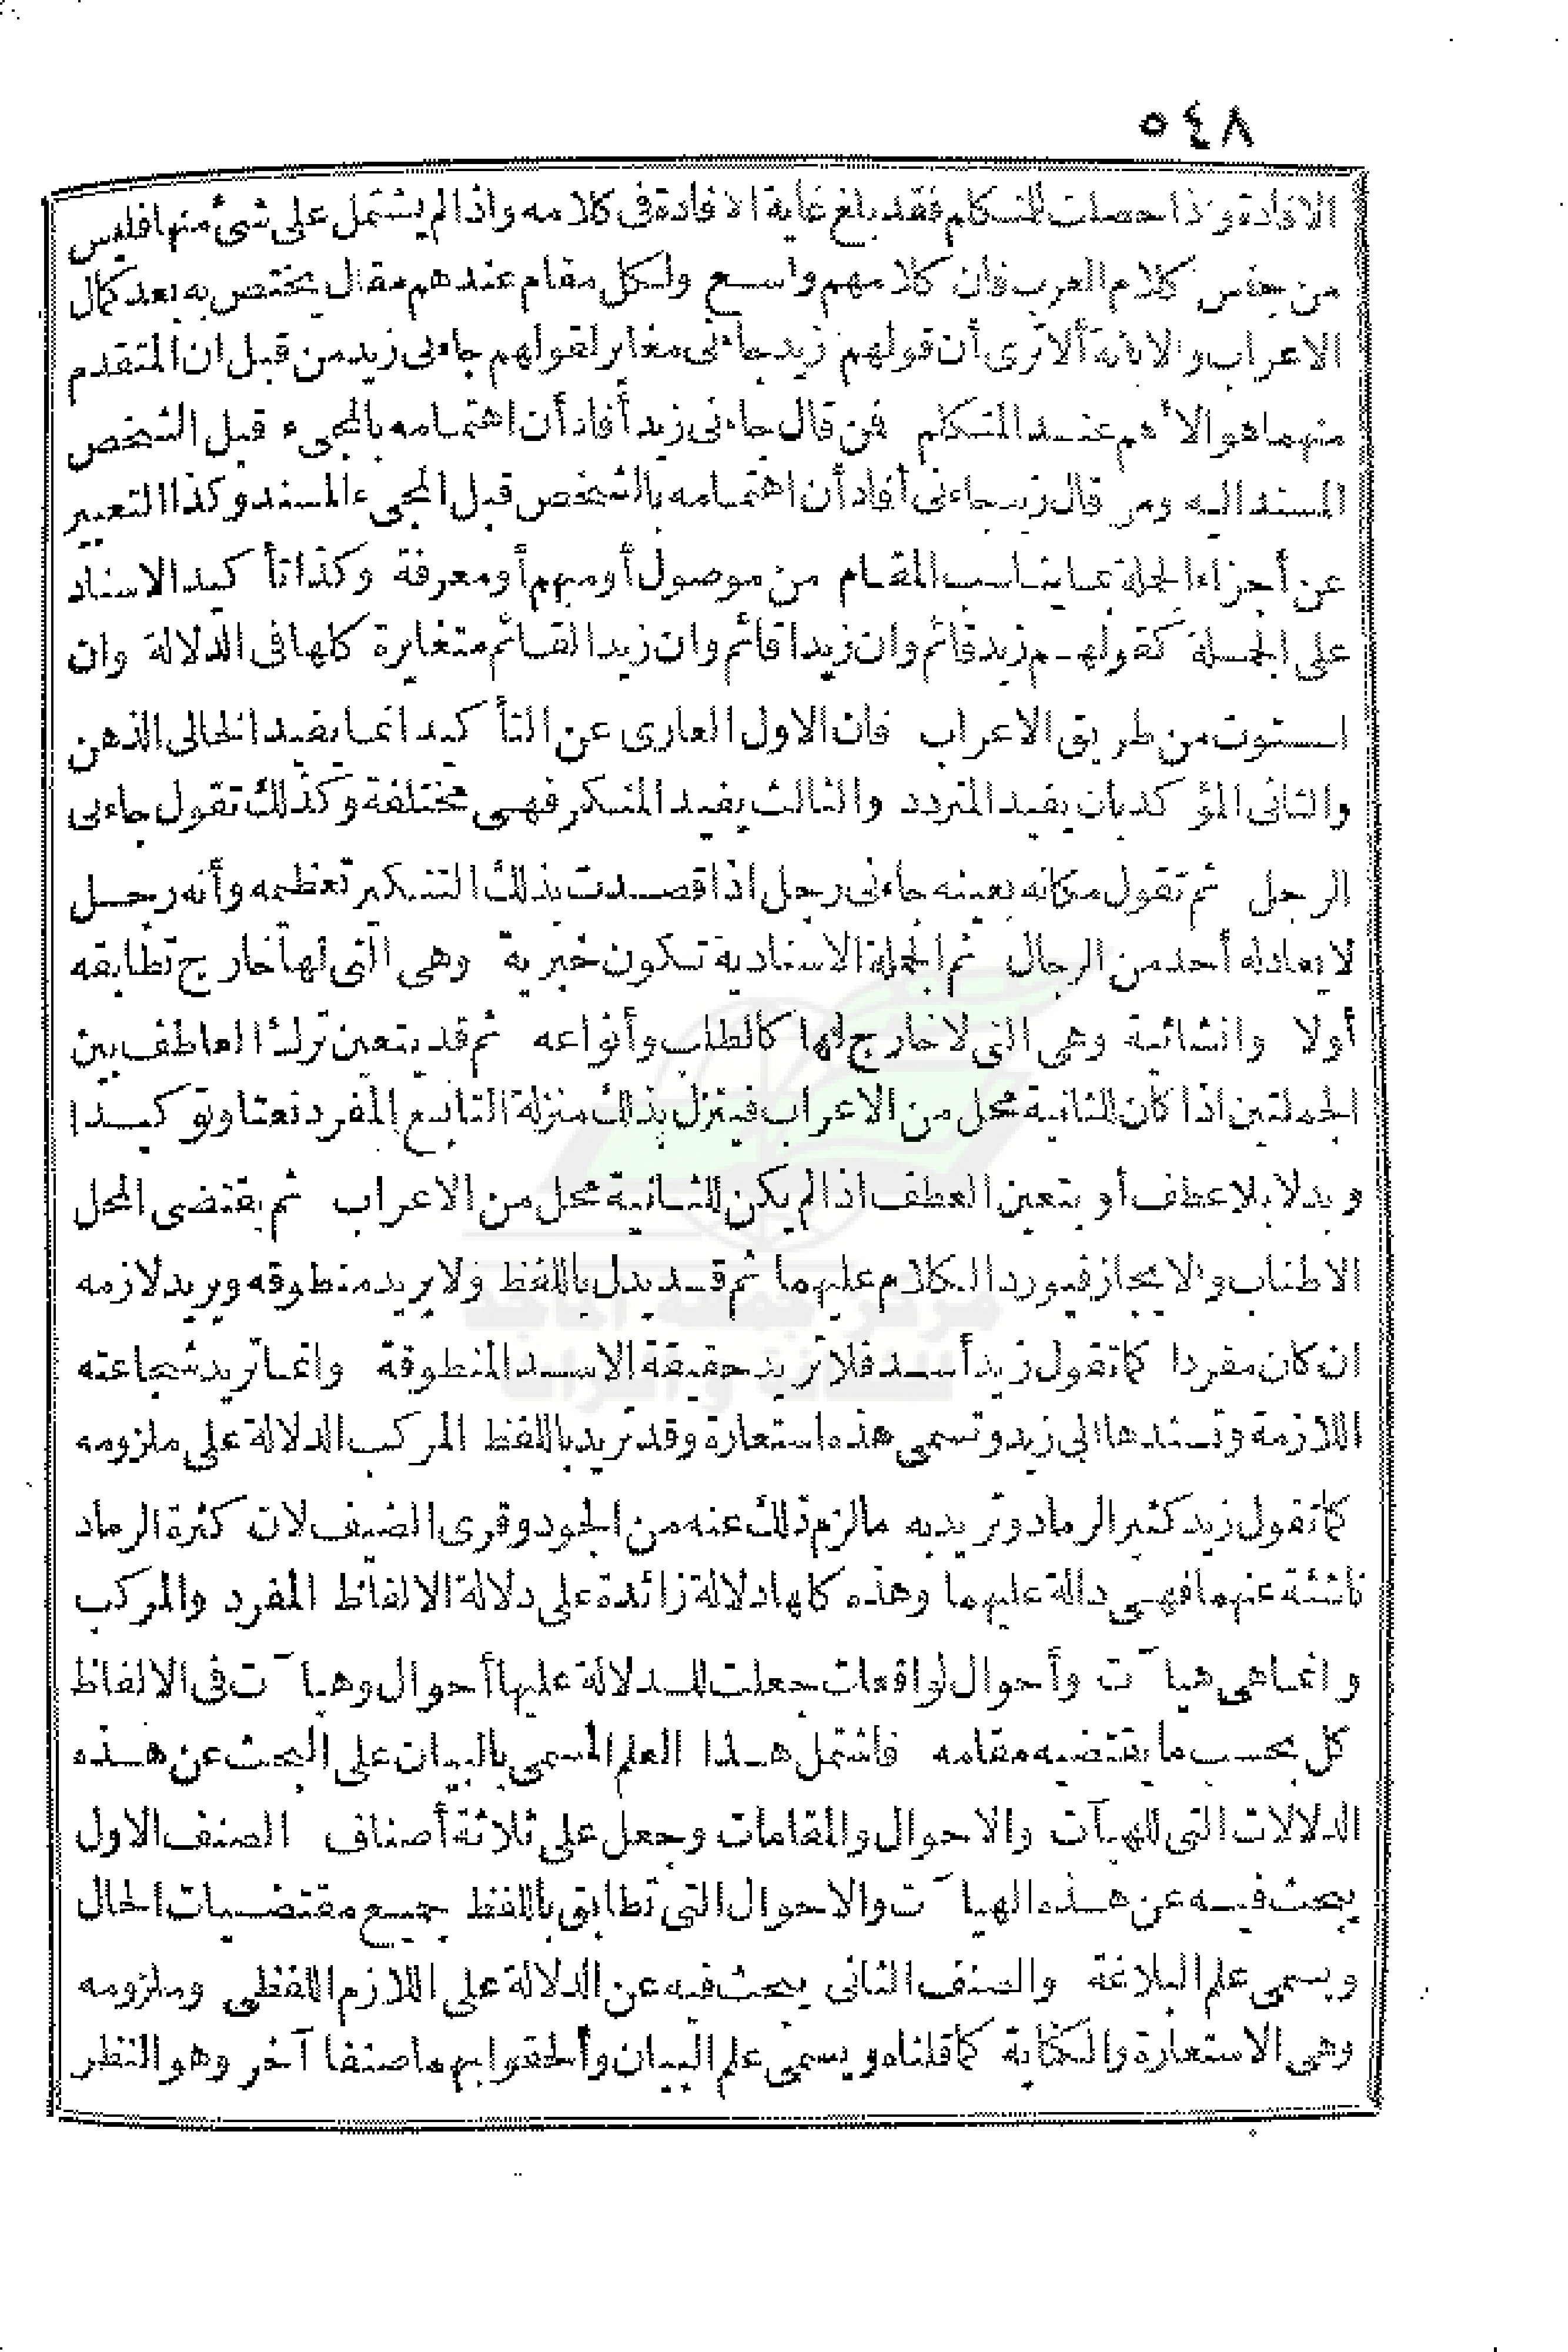 ٥٤٨
الافادة واذا حصلت للمتكلم فقد بلغ غاية الافادة فى كلامه واذا لم يشتمل على شئ منها فليس
من جنس كلام العرب فان كلامهم واسع ولكل مقام عندهم مقال يختص به بعد كمال
الاعراب والابانة ألا ترى أن قولهم زيد جاءنى مغاير لقولهم جاءنى زيد من قبل ان المتقدم
منهما هو الأهم عند المتكلم فمن قال جاءنى زيد أفاد أن اهتمامه بالمجىء قبل الشخص
المسند اليه ومن قال زيد جاءنى أفاد أن اهتمامه بالشخص قبل المجىء المسند وكذا التعبير
عن أجزاء الجملة بما يناسب المقام من موصول أو مبهم أو معرفة وكذا تأكيد الاسناد
على الجملة كقولهم زيد قائم وان زيدا قائم وان زيدا لقائم متغايرة كلها فى الدلالة وان
استوت من طريق الاعراب فان الاول العارى عن التأكيد انما يفيد الخالى الذهن
والثانى المؤكد بان يفيد المتردد والثالث يفيد المنكر فهى مختلفة وكذلك تقول جاءنى
الرجل ثم تقول مكانه بعينه جاءنى رجل اذا قصدت بذلك التنكير تعظيمه وأنه رجل
لا يعادله أحد من الرجال ثم الجملة الاسنادية تكون خبرية وهى التى لها خارج تطابقه
أولا وانشائية وهى التى لا خارج لها كالطلب وأنواعه ثم قد يتعين ترك العاطف بين
الجملتين اذا كان للثانية محل من الاعراب فينزل بذلك منزلة التابع المفرد نعتا وتوكيدا
وبدلا بلا عطف أو يتعين العطف اذا لم يكن للثانية محل من الاعراب ثم يقتضى المحل
الاطناب والايجاز فيورد الكلام عليهما ثم قد يدل باللفظ ولا يريد منطوقه ويريد لازمه
ان كان مفردا كما تقول زيد أسد فلا تريد حقيقة الاسد المنطوقة وانما تريد شجاعته
اللازمة وتسندها الى زيد وتسمى هذه استعارة وقد تريد باللفظ المركب الدلالة على ملزومه
كما تقول زيد كثير الرماد وتريد به ما لزم ذلك عنه من الجود وقرى الضيف لان كثرة الرماد
ناشئة عنهما فهى دالة عليهما وهذه كلها دلالة زائدة على دلالة الالفاظ المفرد والمركب
وانما هى هيآت وأحوال لواقعات جعلت للدلالة عليها أحوال وهيآت فى الالفاظ
كل بحسب ما يقتضيه مقامه فاشتمل هذا العلم المسمى بالبيان على البحث عن هذه
الدلالات التى للهيآت والاحوال والمقامات وجعل على ثلاثة أصناف الصنف الاول
يبحث فيه عن هذه الهيآت والاحوال التى تطابق باللفظ جميع مقتضيات الحال
ويسمى علم البلاغة والصنف الثانى يبحث فيه عن الدلالة على اللازم اللفظى وملزومه
وهى الاستعارة والكناية كما قلناه ويسمى علم البيان وألحقوا بهما صنفا آخر وهو النظر
مركز جمعة الماجد
للثقافة والتراث